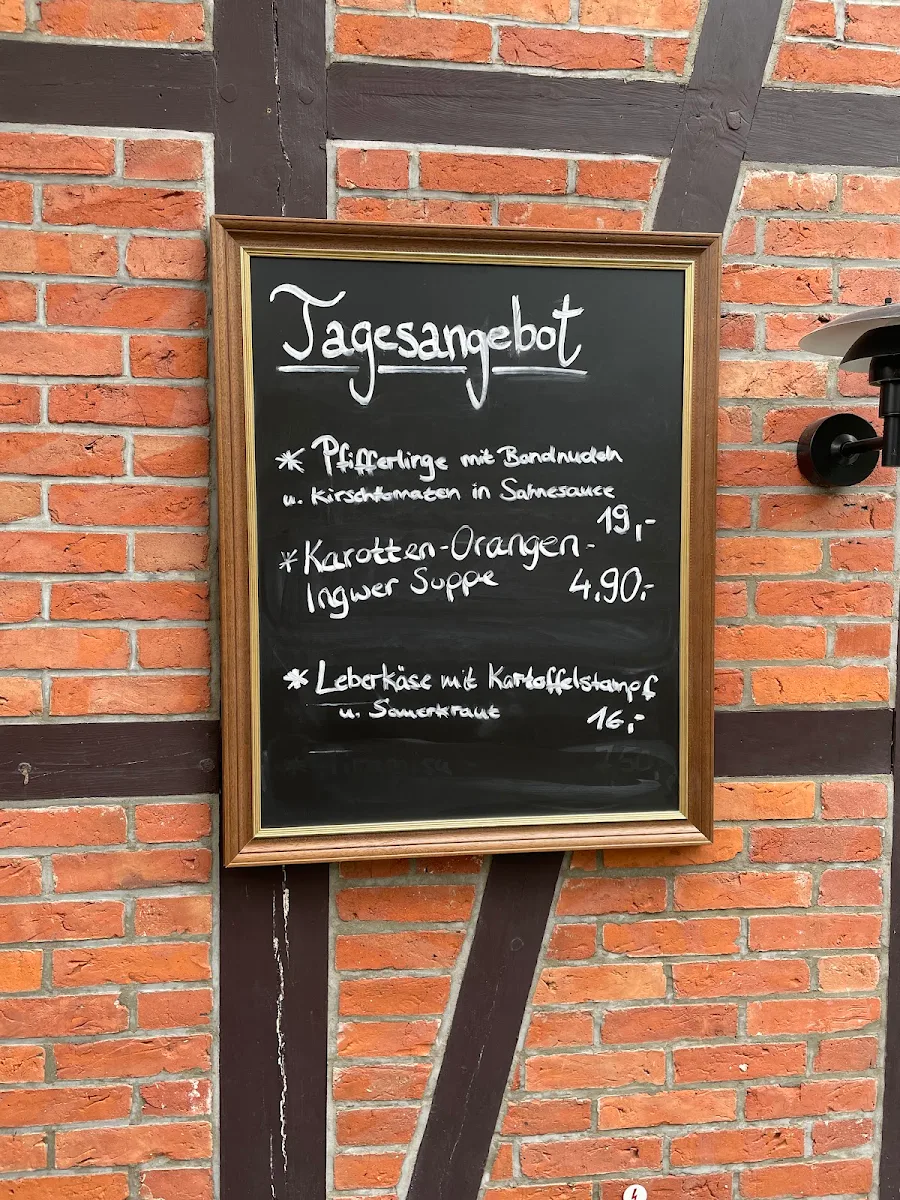 Tagesangebot
* Pfifferlinge mit Bandnudeln
u. Kirschtomaten in Sahnesauce
19,-
* Karotten-Orangen-
Ingwer Suppe 4,90,-
* Leberkäse mit Kartoffelstampf
u. Sauerkraut 16,-